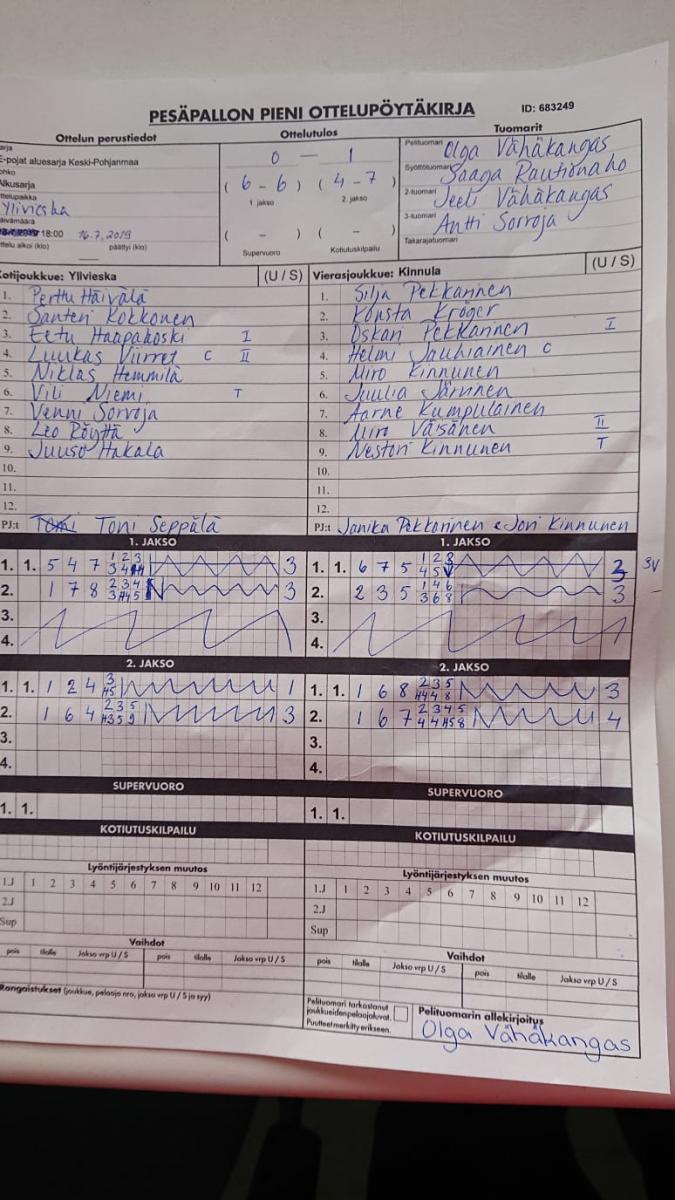 PESÄPALLON PIENI OTTELUPÖYTÄKIRJA ID: 683249
Ottelun perustiedot
E-pojat aluesarja Keski-Pohjanmaa
Alkusarja
Ylivieska
18:00 16.7.2019
ottelu alkoi (klo) päättyi (klo)
Ottelutulos
0 — 1
( 6 - 6 ) ( 4 - 7 )
1. jakso 2. jakso
( - ) ( - )
Supervuoro Kotiutuskilpailu
Tuomarit
Pelituomari Olga Vähäkangas
Syöttötuomari Saaga Rautionaho
2-tuomari Jeeli Vähäkangas
3-tuomari Antti Sorroja
Takarajatuomari
Kotijoukkue: Ylivieska (U / S)
1. Perttu Häivälä
2. Santeri Kokkonen
3. Eetu Haapakoski I
4. Luukas Viirret C II
5. Niklas Hemmilä
6. Vili Niemi T
7. Venni Sorvoja
8. Leo Röyttä
9. Juuso Hakala
10.
11.
12.
PJ:t Toni Seppälä
Vierasjoukkue: Kinnula (U / S)
1. Silja Pekkarinen
2. Konsta Kröger
3. Oskari Pekkarinen I
4. Helmi Jauhiainen C
5. Miro Kinnunen
6. Juulia Järvinen
7. Aarne Kumpulainen
8. Miro Väisänen II
9. Nestori Kinnunen T
10.
11.
12.
PJ:t Janika Pekkarinen & Joni Kinnunen
1. JAKSO
1. 1. 5 4 7 1 2 3 3
2. 1 7 8 2 3 4 3
3.
4.
2. JAKSO
1. 1. 1 2 4 3 1
2. 1 6 4 2 3 5 3
3.
4.
SUPERVUORO
1. 1.
KOTIUTUSKILPAILU
1. JAKSO
1. 1. 6 7 5 1 2 3 3 3V
2. 2 3 5 1 4 6 3 6 8 3
3.
4.
2. JAKSO
1. 1. 1 6 8 2 3 5 3
2. 1 6 7 2 3 4 5 4
3.
4.
SUPERVUORO
1. 1.
KOTIUTUSKILPAILU
Lyöntijärjestyksen muutos
1.J 1 2 3 4 5 6 7 8 9 10 11 12
2.J
Sup
Vaihdot
pois tilalle Jakso vrp U / S pois tilalle Jakso vrp U / S
Rangaistukset (joukkue, pelaaja nro, jakso vrp U / S ja syy)
Lyöntijärjestyksen muutos
1.J 1 2 3 4 5 6 7 8 9 10 11 12
2.J
Sup
Vaihdot
pois tilalle Jakso vrp U / S pois tilalle Jakso vrp U / S
Pelituomari tarkastanut
joukkueiden pelaajaluvat.
Puutteet merkitty erikseen.
Pelituomarin allekirjoitus
Olga Vähäkangas